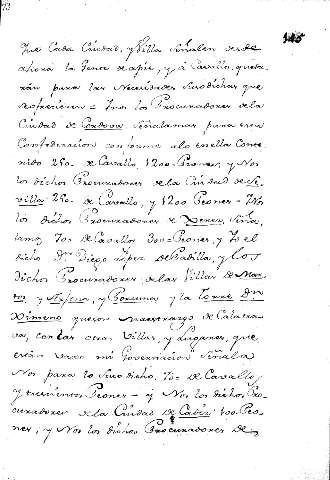 145
Que Cada Ciudad, y Villa Señalen desde
ahora la Gente de apie, y á Cavallo, que ta-
rán para las Necesidades Susodichas que
se ofrecieren = Y nos los Procuradores de la
Ciudad de Cordova Señalamos para esta
Confederacion conforme alo en ella Conte-
nido 250. de Cavallo, 1200. Peones, y Nos
los dichos Procuradores de la Ciudad de Se-
villa 250. de Cavallo, y 1200 Peones = Nos
los dichos Procuradores de Xerez, Seña-
lamos 70. de Cavallo 300. Peones, y Yo el
dicho Dn. Diego Lopez de Padilla, y los
dichos Procuradores de las Villas de Mar-
tos, y Arjona, y Porcuna, y la Torre Dn
Ximeno que son Maestrazgo de Calatra-
va, con las otras Villas, y Lugares, que
están vaxo mi Governacion Señala
Nos para lo Susodicho, 70. de Cavallo,
y Peones = y Nos los dichos Pro-
curadores de la Ciudad de Cadiz 100. Peo-
nes, y Nos los dichos Procuradores de